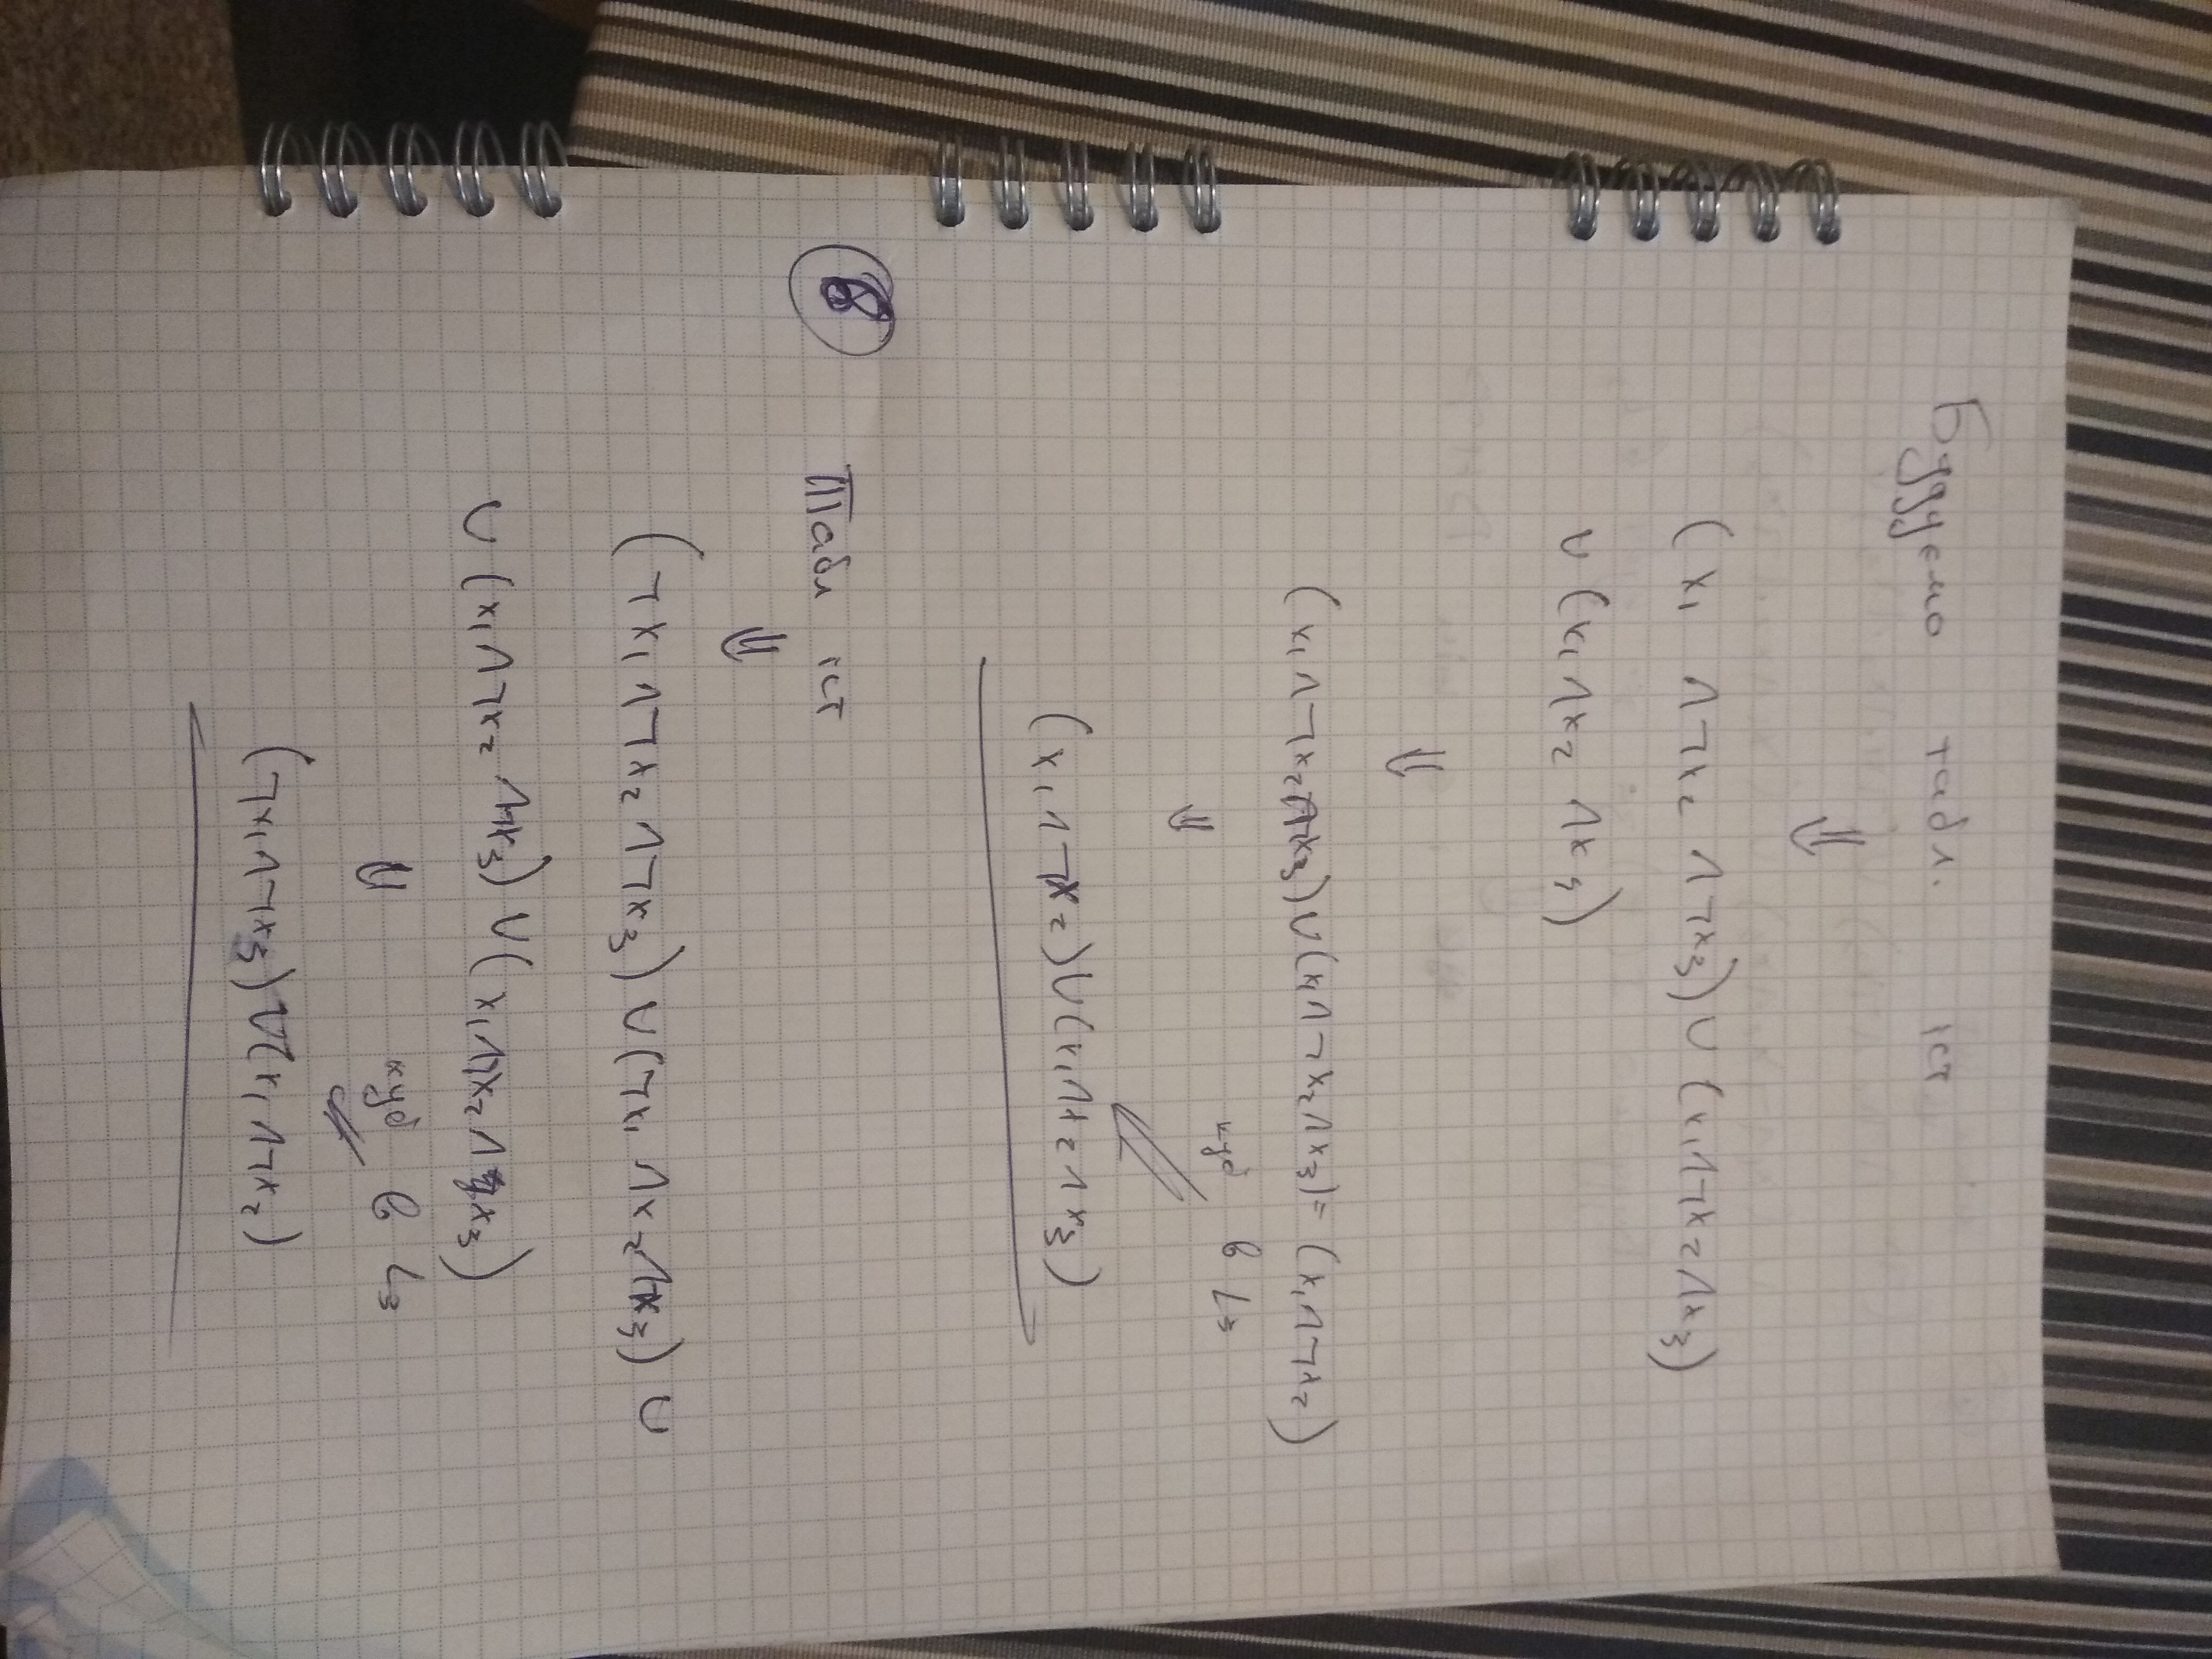 Будуємо табл. іст
⇓
(x₁ ∧ ¬x₂ ∧ ¬x₃) ∪ (x₁ ∧ ¬x₂ ∧ x₃)
∪ (x₁ ∧ x₂ ∧ x₃)
⇓
(x₁ ∧ ¬x₂ ∧ ¬x₃) ∪ (x₁ ∧ ¬x₂ ∧ x₃) = (x₁ ∧ ¬x₂)
⇓ куб в L₃
(x₁ ∧ ¬x₂) ∪ (x₁ ∧ x₂ ∧ x₃)
8 Табл іст
⇓
(¬x₁ ∧ ¬x₂ ∧ ¬x₃) ∪ (¬x₁ ∧ x₂ ∧ x₃) ∪
∪ (x₁ ∧ ¬x₂ ∧ x₃) ∪ (x₁ ∧ x₂ ∧ x₃)
⇓ куб в L₃
(¬x₁ ∧ ¬x₃) ∪ (x₁ ∧ ¬x₂)